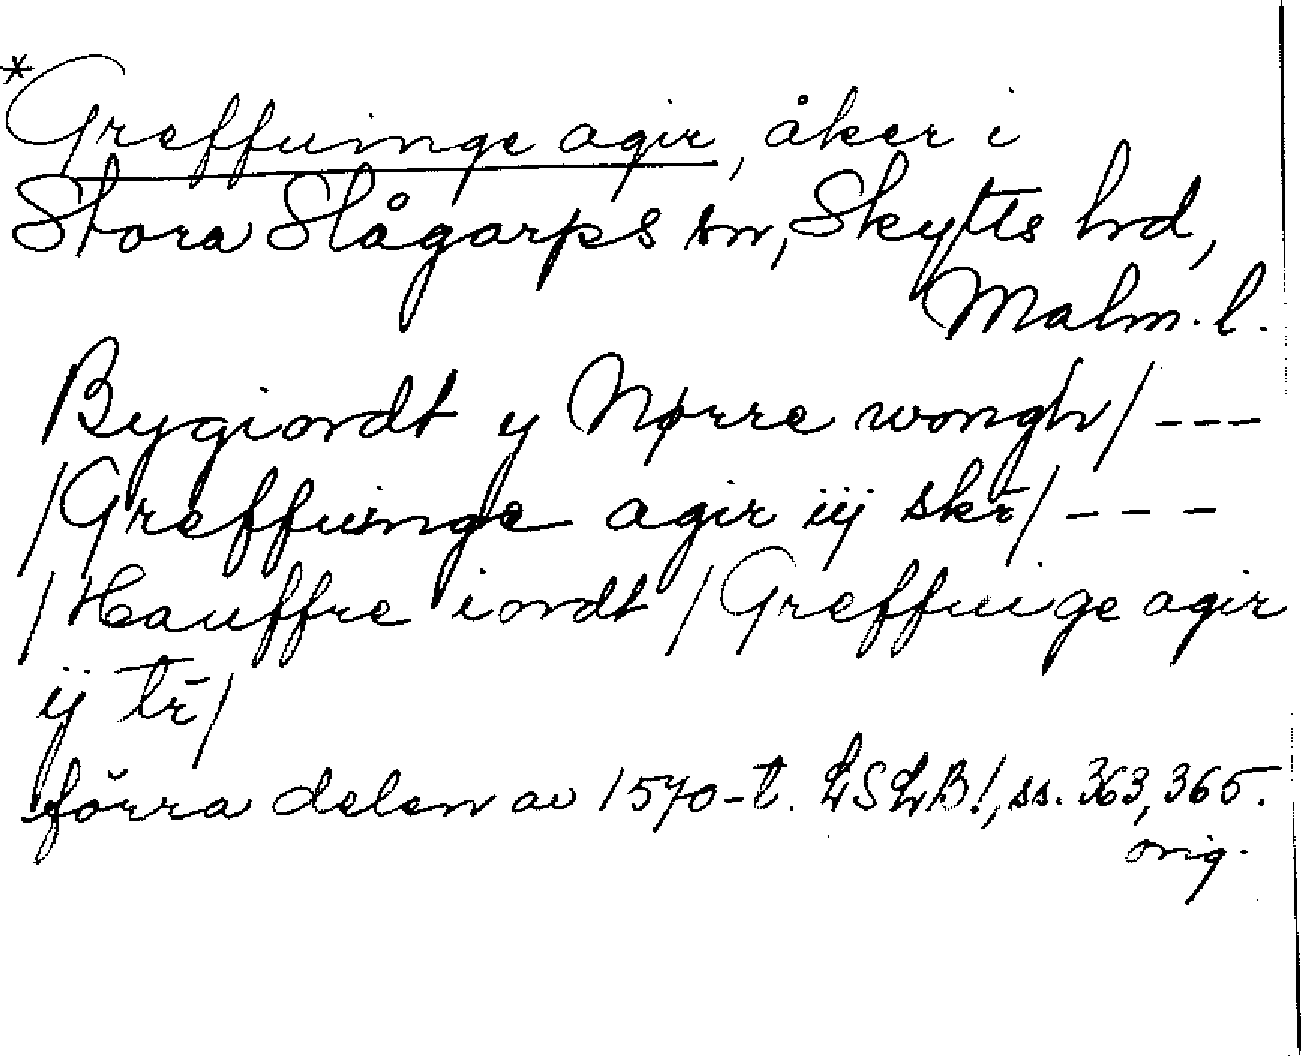 *Greffuinge agir, åker i
Stora Slågarps sn, Skytts hd,
Malm. l.
Bygiordt y Nørre wongh/ ---
/Greffuinge agir iij skr̄/ ---
/Hauffre iordt / Greffuige agir
ij tr̄/
förra delen av 1570-t. LSLB!, ss. 363, 365.
orig.